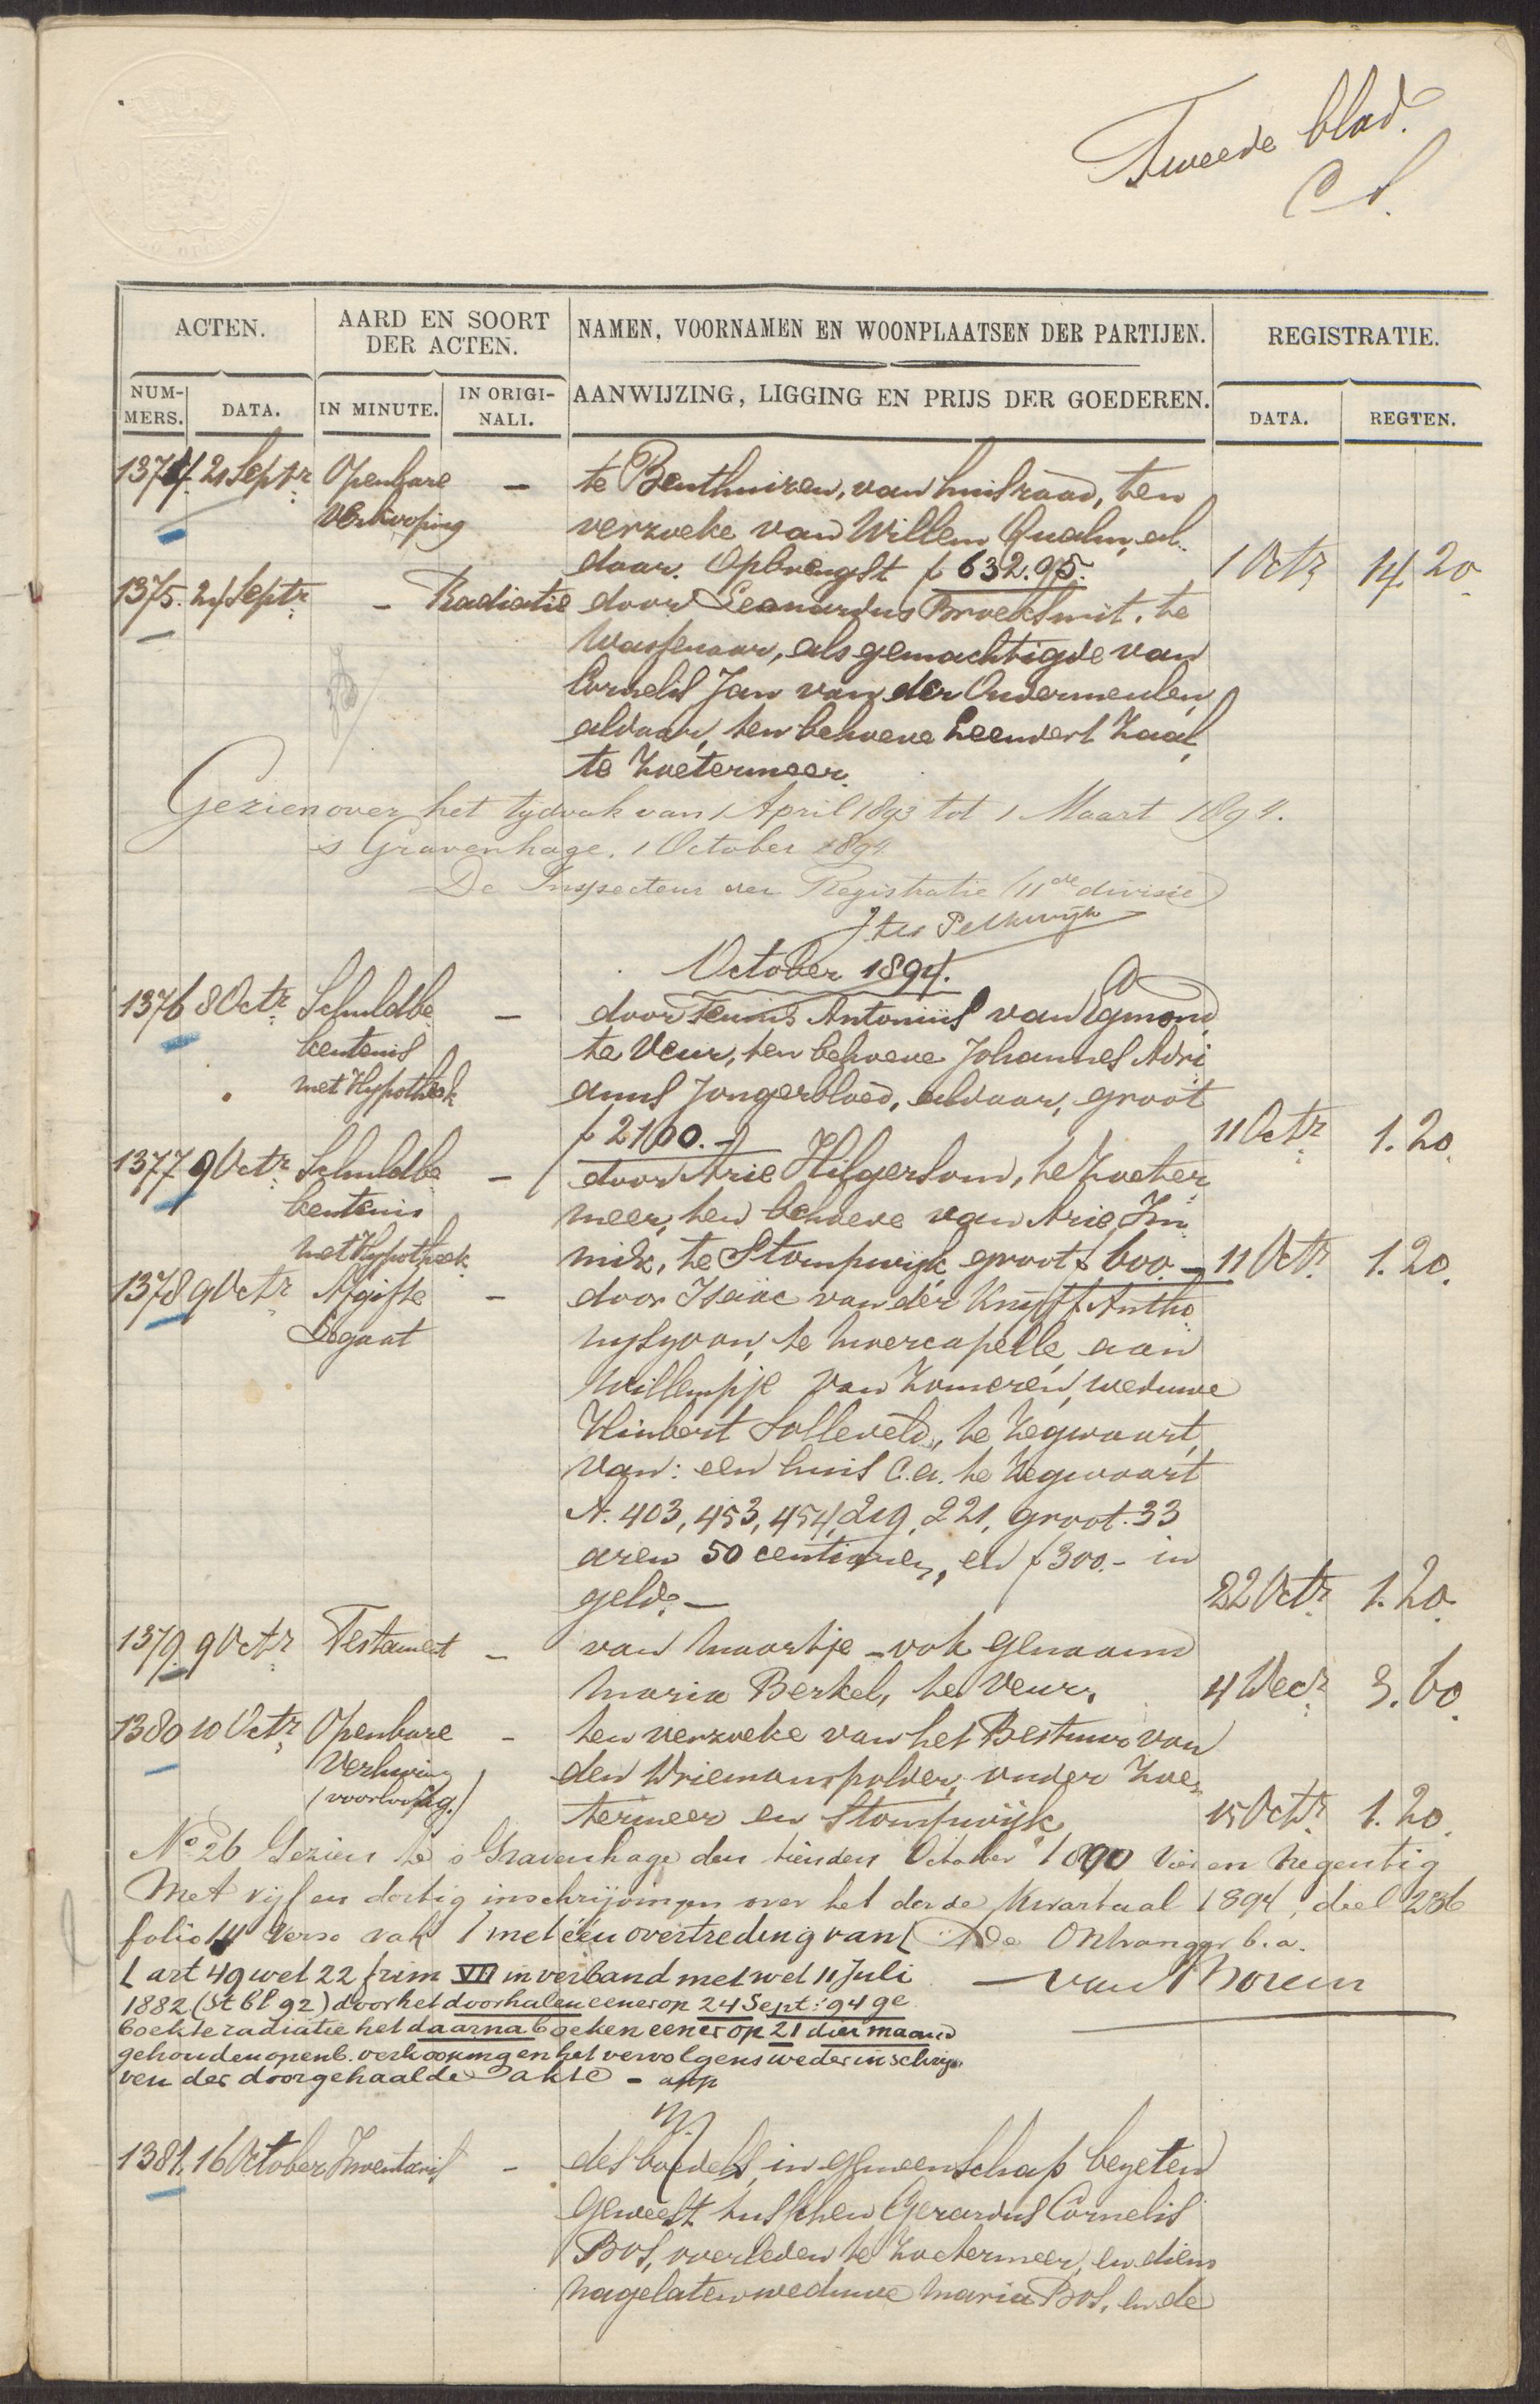 Tweede blad.
ACTEN.
AARD EN SOORT DER ACTEN.
NAMEN, VOORNAMEN EN WOONPLAATSEN DER PARTIJEN.
REGISTRATIE.
NUM-MERS.
DATA.
IN MINUTE.
IN ORIGI-NALI.
AANWIJZING, LIGGING EN PRIJS DER GOEDEREN.
DATA.
REGTEN.
1374. 21 Septr. Openbare – te Benthuizen, van huisraad, ten
Verkooping verzoeke van Willem Qualm, al
daar. Opbrengst f 632.95. 1 Octr. 14.20
1375. 24 Septr. – Radiatie door Leonardus Broeksmit, te
Wassenaar, als gemachtigde van
Cornelis Jan van der Oudermeulen,
aldaar, ten behoeve Leendert Zaal,
te Zoetermeer.
Gezien over het tijdvak van 1 April 1893 tot 1 Maart 1894.
s Gravenhage, 1 October 1894
De Inspecteur der Registratie (11de divisie)
J ter Pelkwijk
October 1894.
1376 8 Octr. Schuldbe – door Teunis Antonius van Egmond
kentenis te Veur, ten behoeve Johannes Adri
met Hypotheek anus Jongerbloed, aldaar, groot
f 2100.– 11 Octr. 1.20.
1377 9 Octr. Schuldbe – door Arie Hilgersom, te Zoeter
kentenis meer, ten behoeve van Arie Im
met Hypotheek mik, te Stompwijk groot f 600.– 11 Octr. 1.20.
1378 9 Octr. Afgifte – door Isaäc van der Knijff Antho
Legaat nijszoon, te Moercapelle, aan
Willempje van Zomeren, weduwe
Huibert Solleveld, te Zegwaart,
van: een huis c.a. te Zegwaart
A. 403, 453, 454, 219, 221, groot 33
aren 50 centiaren, en f 300.– in
geld.– 22 Octr. 1.20.
1379. 9 Octr. Testament – van Maartje – ook genaamd
Maria Berkel, te Veur. 4 Decr. 3.60.
1380 10 Octr. Openbare – ten verzoeke van het Bestuur van
Verhuring den Driemanspolder, onder Zoe
(voorloopig.) termeer en Stompwijk 15 Octr. 1.20.
No 26 Gezien te s Gravenhage den tienden October 1890 vier en negentig
Met vijf en dertig inschrijvingen over het derde kwartaal 1894, deel 236
folio 14 verso vak 1 met één overtreding van [ De Ontvanger b.a.
[ art 49 wet 22 frim VII in verband met wet 11 Juli
van Boren
1882 (St bl 92) door het doorhalen eener op 24 Sept: 94 ge
boekte radiatie het daarna boeken eener op 21 dier maand
gehouden openb. verkooping en het vervolgens weder inschrij
ven der doorgehaalde akte –
1381. 16 October Inventaris – des boedels, in gemeenschap bezeten
geweest tusschen Gerardus Cornelis
Bos, overleden te Zoetermeer, en diens
nagelaten weduwe Maria Bos, en de